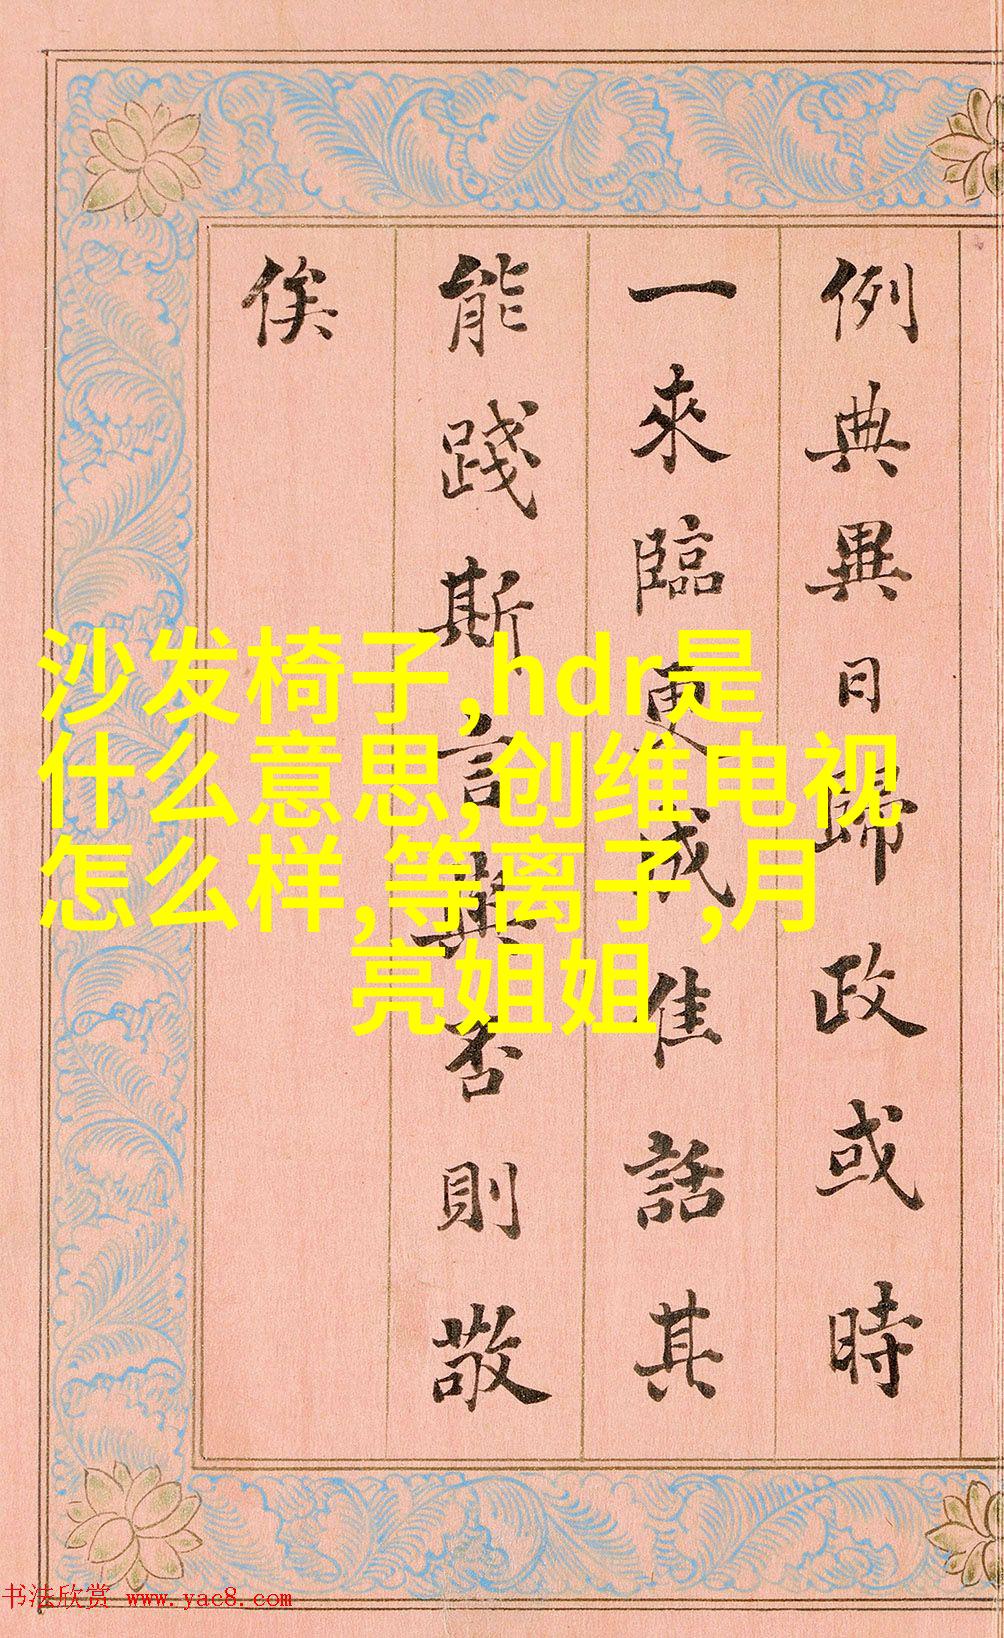 例典畢日歸政或時
一來臨更成佳話其
能踐斯言與否則敬
俟
沙发椅子,hdr是
什么意思,创维电视
怎么样,等离子,月
亮姐姐
书法欣赏 www.yac8.com